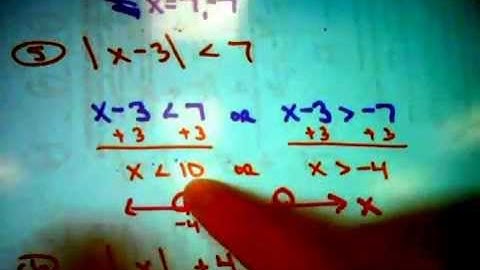 x=7,-7
5 |x-3| < 7
x-3 < 7 or x-3 > -7
+3 +3 +3 +3
x < 10 or x > -4
x
-4
|x| + 4